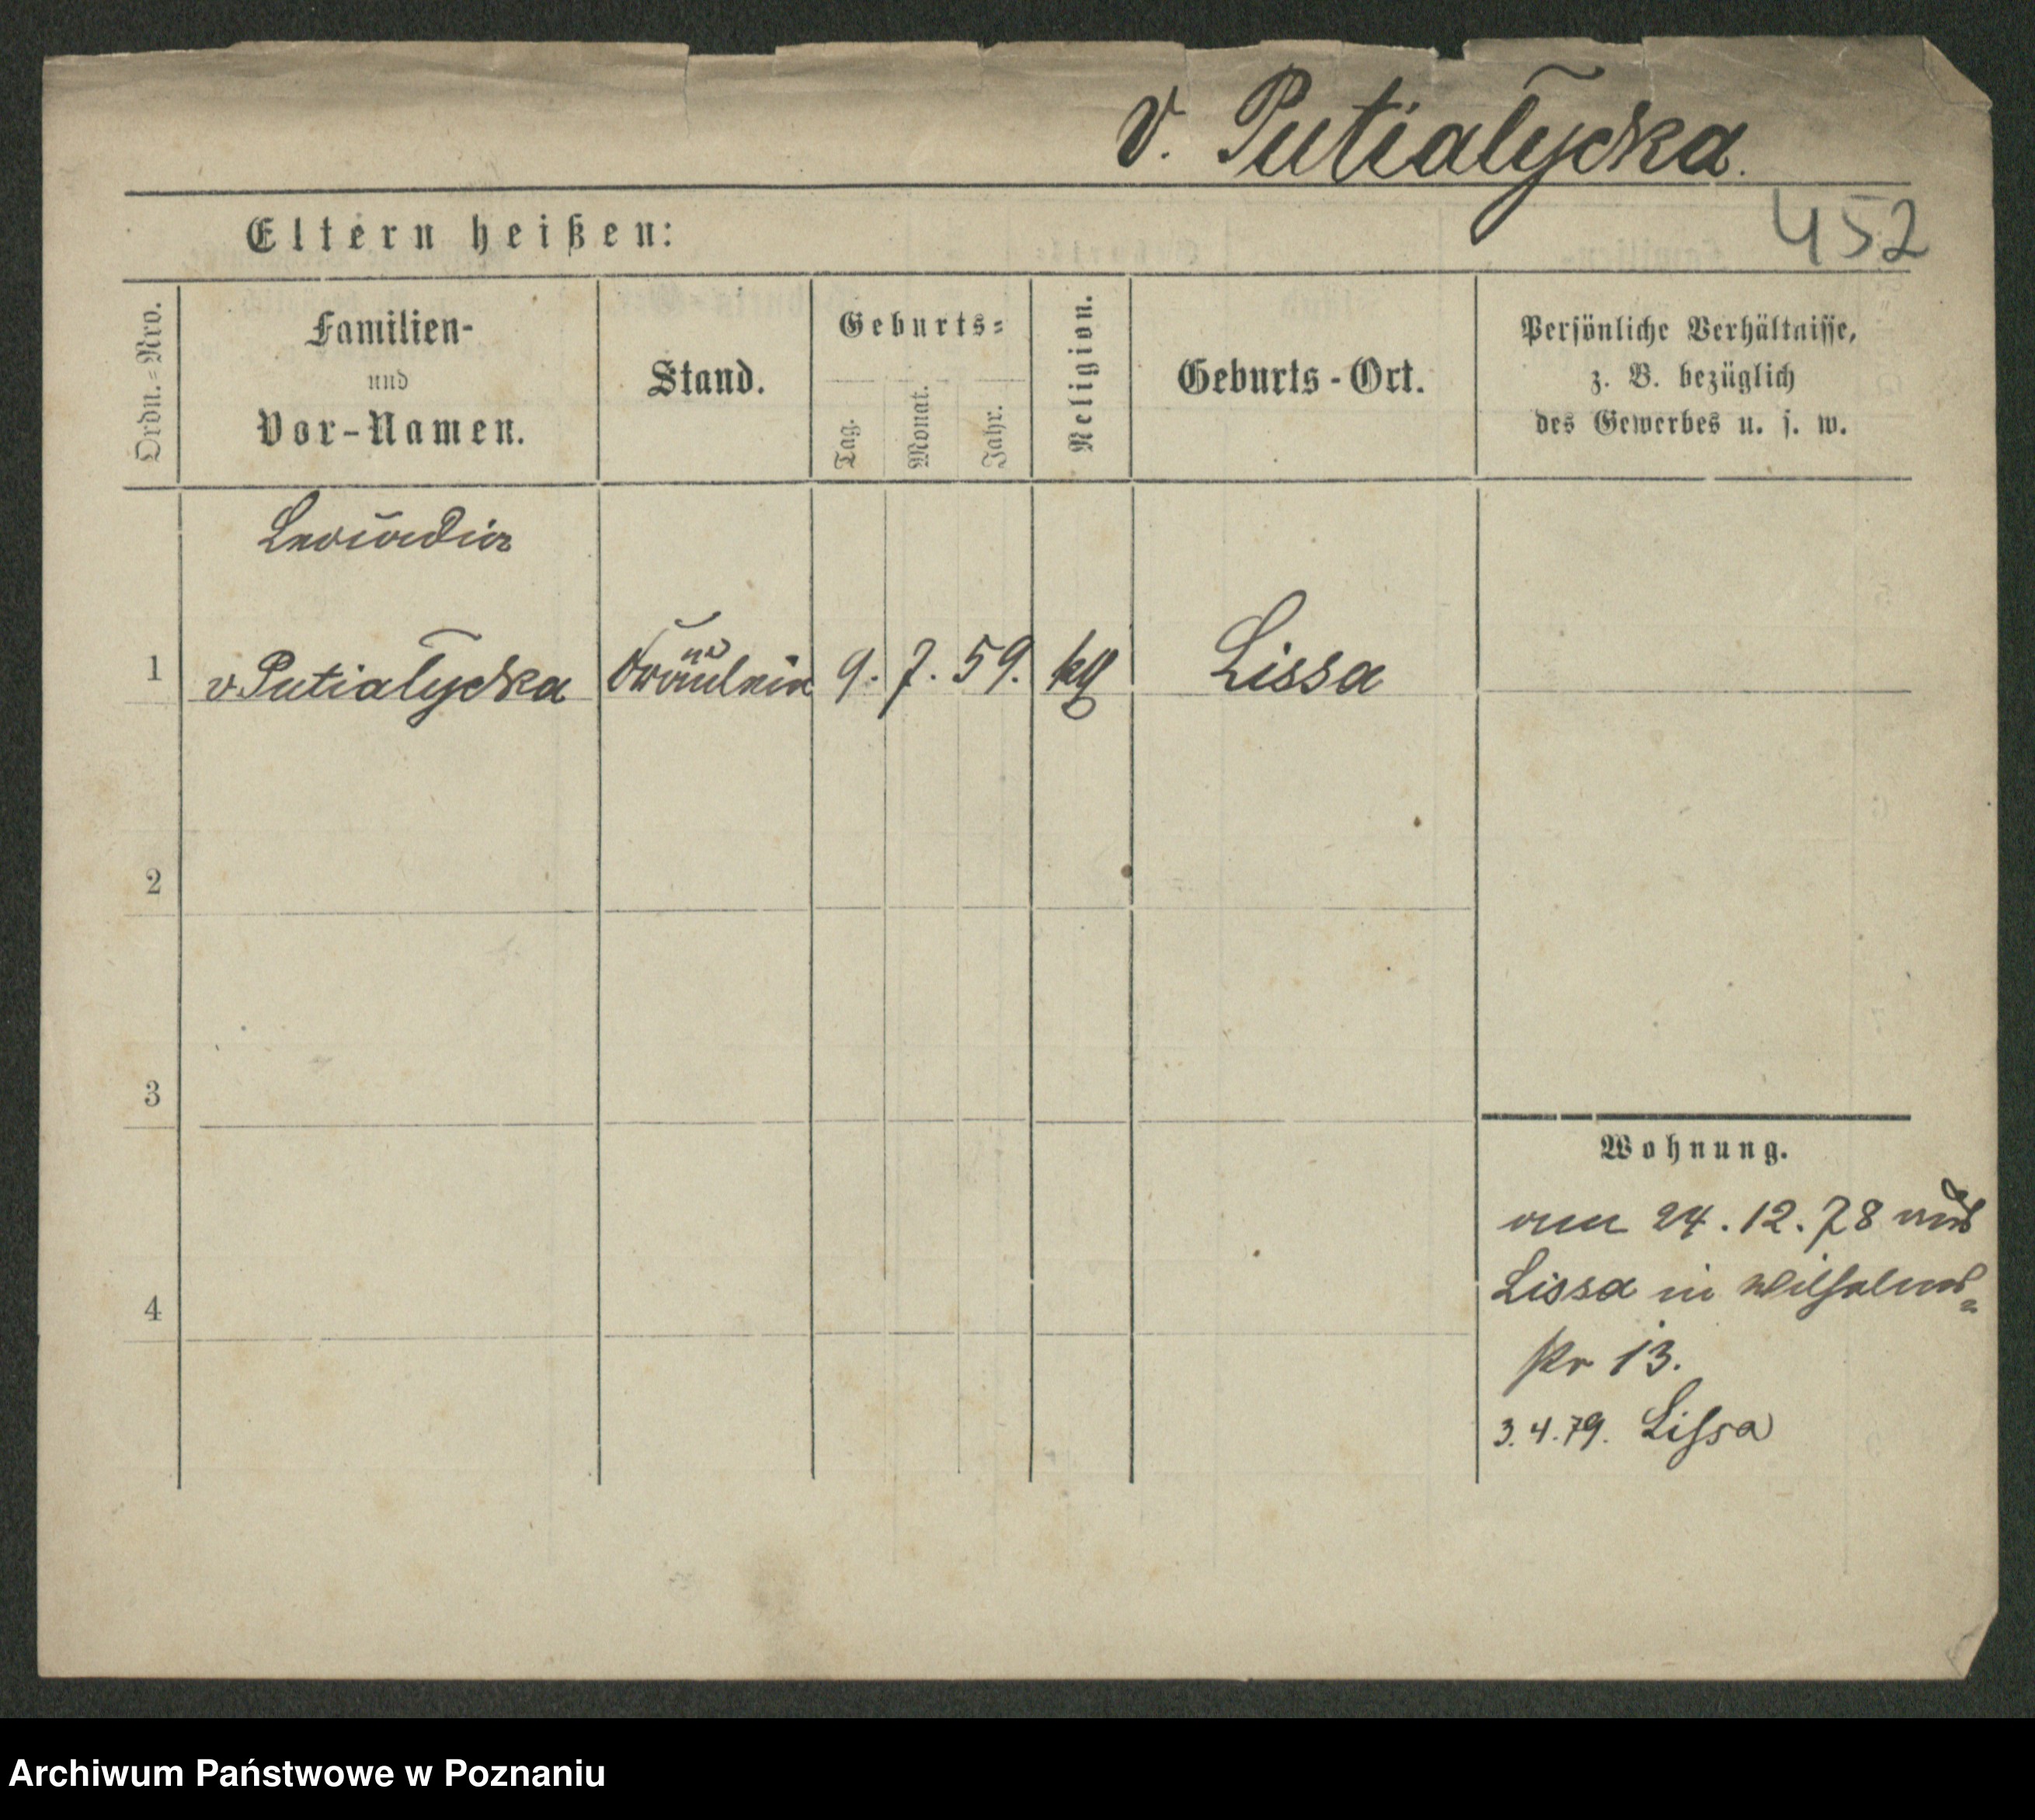 v. Putialycka.
452
Eltern heißen:
Ordn.=Nro.
Familien-
und
Vor-Namen.
Stand.
Geburts=
Tag.
Monat.
Jahr.
Religion.
Geburts-Ort.
Persönliche Verhältnisse,
z. B. bezüglich
des Gewerbes u. s. w.
1
v. Putialycka Fräulein 9. 7. 59. Lissa
2
3
Wohnung.
24.12.78 aus
Lissa in Wilhelms=
4
str 13.
3.4.79. Lissa
Archiwum Państwowe w Poznaniu